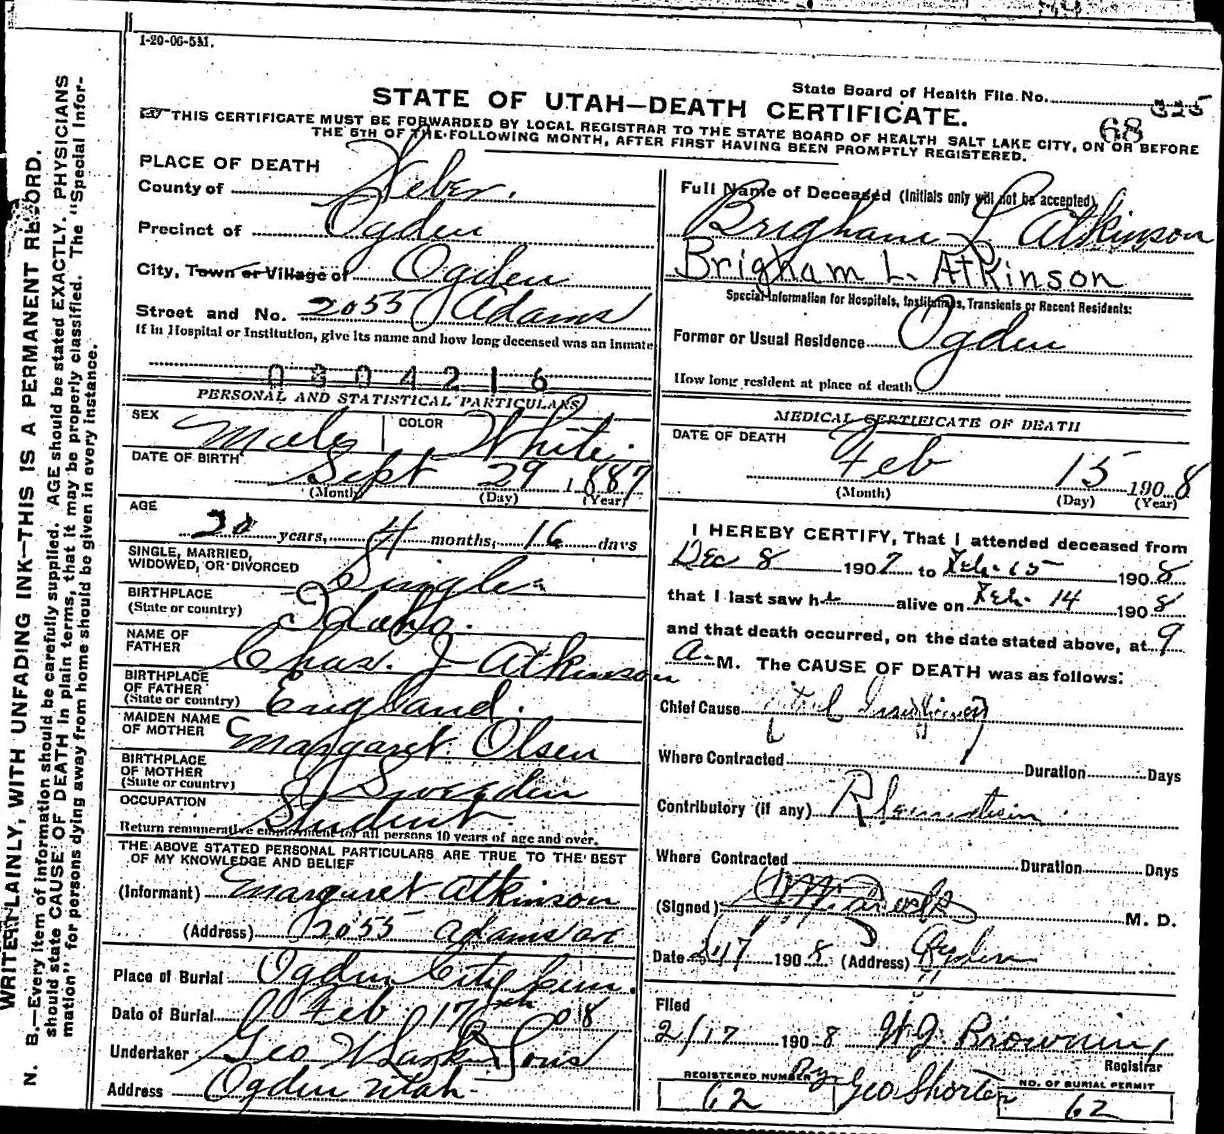 1-20-06-5M.
State Board of Health File No. 325
STATE OF UTAH—DEATH CERTIFICATE.
68
THIS CERTIFICATE MUST BE FORWARDED BY LOCAL REGISTRAR TO THE STATE BOARD OF HEALTH SALT LAKE CITY, ON OR BEFORE
THE 5TH OF THE FOLLOWING MONTH, AFTER FIRST HAVING BEEN PROMPTLY REGISTERED.
WRITE PLAINLY, WITH UNFADING INK—THIS IS A PERMANENT RECORD.
N. B.—Every item of information should be carefully supplied. AGE should be stated EXACTLY. PHYSICIANS
should state CAUSE OF DEATH in plain terms, that it may be properly classified. The "Special Infor-
mation" for persons dying away from home should be given in every instance.
PLACE OF DEATH
County of Weber.
Precinct of Ogden
City, Town or Village of Ogden
Street and No. 2055 Adams
If in Hospital or Institution, give its name and how long deceased was an inmate
0804216
PERSONAL AND STATISTICAL PARTICULARS
SEX Male COLOR White.
DATE OF BIRTH Sept 29 1887
(Month) (Day) (Year)
AGE
20 years, 4 months, 16 days
SINGLE, MARRIED,
WIDOWED, OR DIVORCED Single
BIRTHPLACE
(State or country) Idaho.
NAME OF
FATHER Chas. J Atkinson
BIRTHPLACE
OF FATHER
(State or country) England.
MAIDEN NAME
OF MOTHER Margaret Olsen
BIRTHPLACE
OF MOTHER
(State or country) Sweeden
OCCUPATION Student
Return remunerative employment for all persons 10 years of age and over.
THE ABOVE STATED PERSONAL PARTICULARS ARE TRUE TO THE BEST
OF MY KNOWLEDGE AND BELIEF
(Informant) Margaret Atkinson
(Address) 2055 Adams av
Place of Burial Ogden City Cem.
Date of Burial Feb 17 08
Undertaker Geo W Larkin & Sons
Address Ogden Utah
Full Name of Deceased (Initials only will not be accepted)
Brigham L Atkinson
Brigham L. Atkinson
Special Information for Hospitals, Institutions, Transients or Recent Residents:
Former or Usual Residence Ogden
How long resident at place of death
MEDICAL CERTIFICATE OF DEATH
DATE OF DEATH
Feb 15 1908
(Month) (Day) (Year)
I HEREBY CERTIFY, That I attended deceased from
Dec 8 1907 to Feb. 15 1908
that I last saw h alive on Feb. 14 1908
and that death occurred, on the date stated above, at 9
a. M. The CAUSE OF DEATH was as follows:
Chief Cause
Where Contracted Duration Days
Contributory (if any)
Where Contracted Duration Days
(Signed) M. D.
Date 2/17 1908 (Address) Ogden
Filed
2/17 1908 W.J. Browning
Registrar
REGISTERED NUMBER By Geo Shorten NO. OF BURIAL PERMIT
62 62